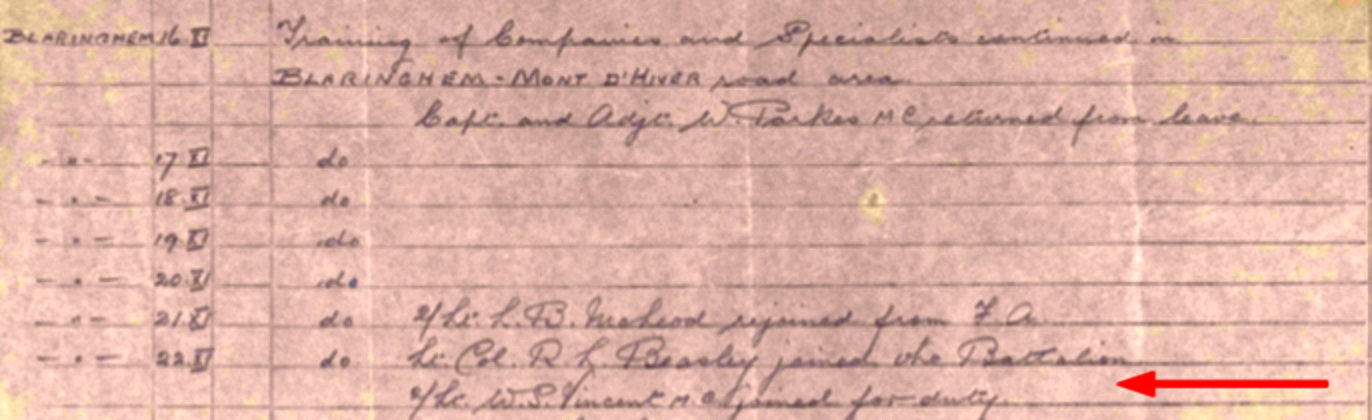 BLARINGHEM 16 XI Training of Companies and Specialists continued in
BLARINGHEM - MONT D'HIVER road area.
Capt. and Adjt. W. Parkes MC returned from leave.
- " - 17 XI do
- " - 18 XI do
- " - 19 XI do
- " - 20 XI do
- " - 21 XI do 2/Lt. L. B. McLeod rejoined from F. A.
- " - 22 XI do Lt. Col. R. L. Beasley joined the Battalion
2/Lt. W. S. Vincent M.C. joined for duty.